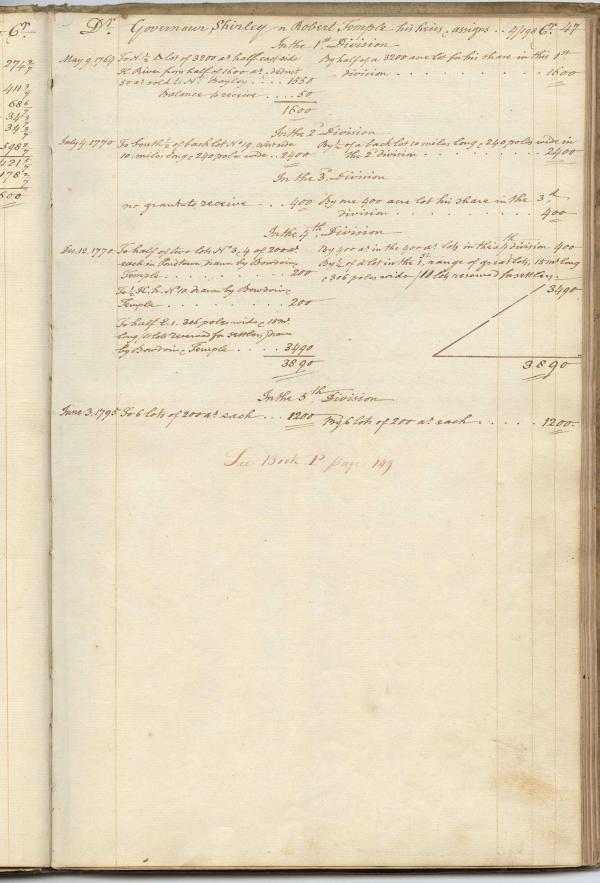 Cr.
274 2/7
411 3/7
68 6/7
34 2/7
34 2/7
598 2/7
421 5/7
178 2/7
600
Dr. Governour Shirley n Robert Temple his heirs, assigns .. 4/198 Cr. 47
In the 1st. Division
May 9, 1769 To N. ½ D lot of 3200 as. half east side By half of a 3200 acre lot for his share in this 1st.
K. River for half of 1600 as. deduct division . . . . . 1600
50 as. sold to Ns. Bayley . . . . 1550
Balance to receive . . . . 50
1600
In the 2d. Division
July 4, 1770 To South ½ of back lot No. 19, west side By ½ of a back lot 10 miles long & 240 poles wide in
10 miles long & 240 poles wide .. 2400 the 2d. division . . . . . 2400
In the 3d. Division
no grant to receive . . . 400 By one 400 acre lot his share in the 3d.
division . . . . . 400
In the 4th. Division
Dec. 12, 1770 To half of two lots No. 3, 4 of 200 as. By 400 as. in the 400 as. lots in this 4th. division 400
each in Pondtown, drawn by Bowdoin, By ½ of a lot in the 1st. range of great lots, 15 ms. long
Temple . . . . . 200 & 306 poles wide / 11 lots reserved for settlers
To ½ H. h. No. 10. drawn by Bowdoin, 3490
Temple . . . . . 200
To half E. 1. 306 poles wide & 15 ms.
long 11 lots reserved for settlers drawn
by Bowdoin & Temple . . . . 3490
3890 3890
In the 5th. Division
June 3, 1795 To 6 lots of 200 as. each . . . 1200 By 6 lots of 200 as. each . . . . . 1200.
See Book P page 149